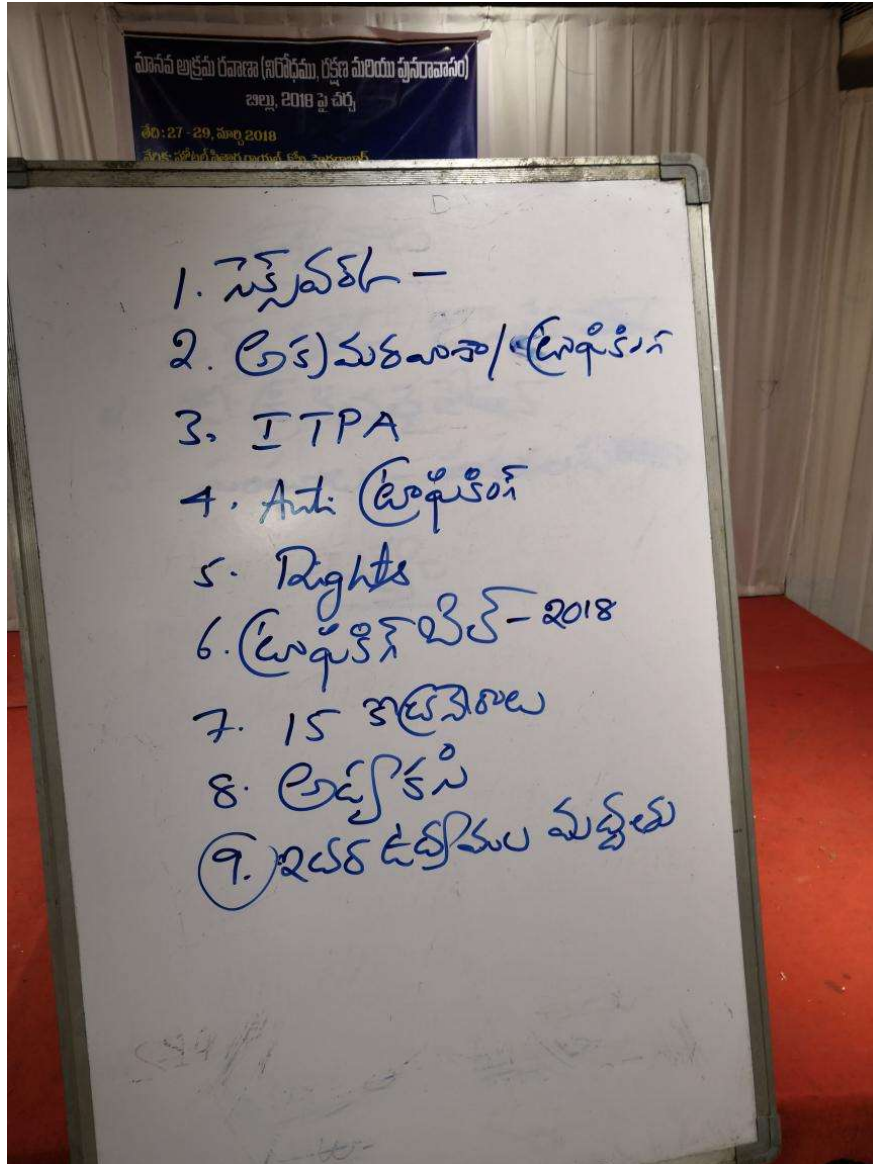 మానవ అక్రమ రవాణా (నిరోధము, రక్షణ మరియు పునరావాసం)
బిల్లు, 2018 పై చర్చ
తేది : 27 - 29, మార్చి 2018
1. సెక్స్‌వర్క్ –
2. అక్రమరవాణా/ ట్రాఫికింగ్
3. ITPA
4. Anti ట్రాఫికింగ్
5. Rights
6. ట్రాఫికింగ్ బిల్ – 2018
7. 15
8. అడ్వొకసి
9. ఇతర ఉద్యమాల మద్దతు